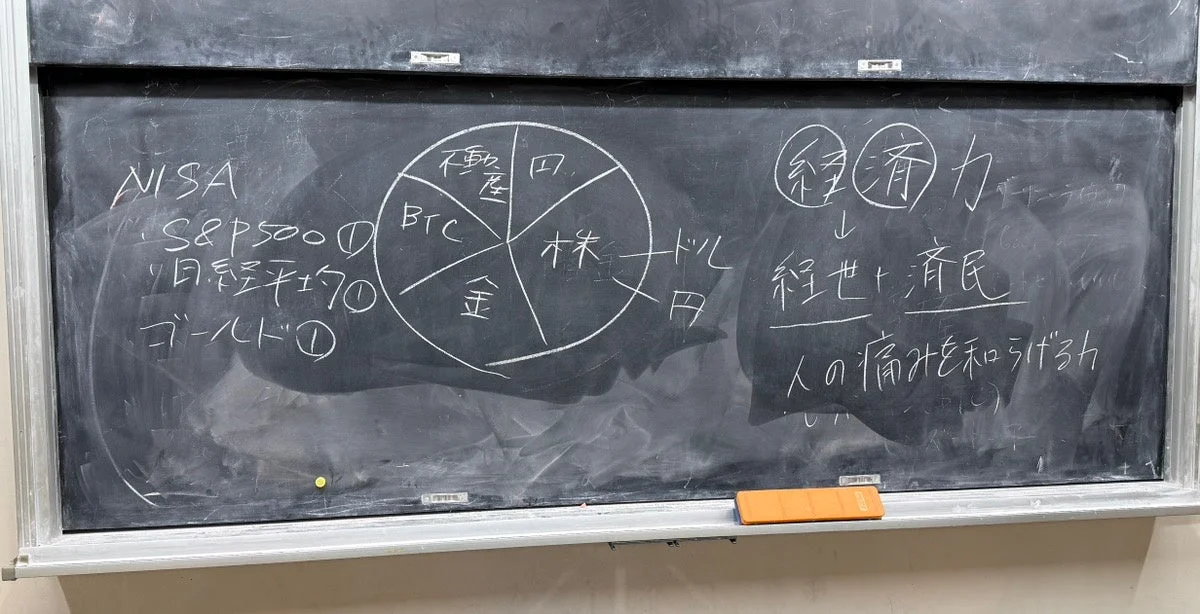 NISA
S&P500①
〃日経平均①
ゴールド①
不動産
円
BTC
株
金
ドル
円
経済力
↓
経世+済民
人の痛みを和らげる力